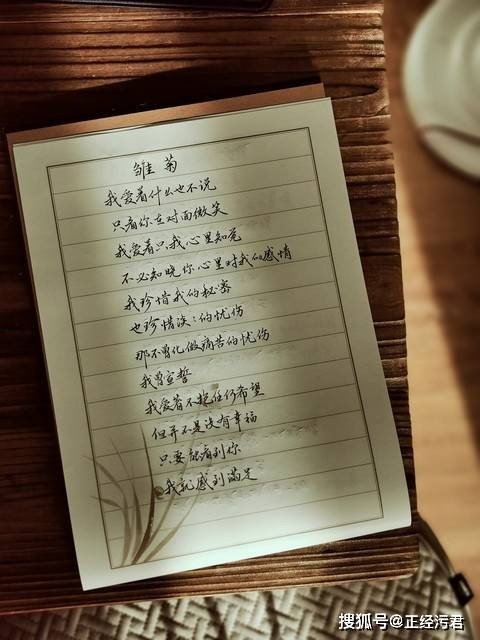 雏菊
我爱着什么也不说
只看你在对面微笑
我爱着只我心里知觉
不必知晓你心里对我的感情
我珍惜我的秘密
也珍惜淡:的忧伤
那不曾化做痛苦的忧伤
我曾宣誓
我爱着不抱任何希望
但并不是没有幸福
只要能看到你
我就感到满足
搜狐号@正经污君